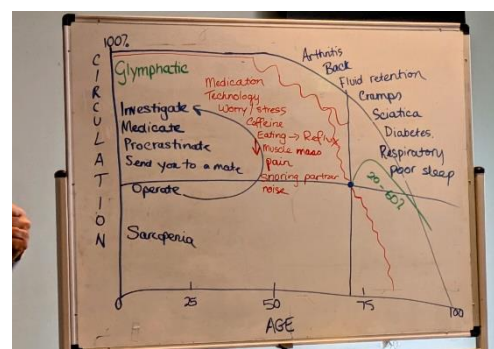 100%
CIRCULATION
Glymphatic
Investigate
Medicate
Procrastinate
Send you to a mate
Operate
Sarcopenia
Medication
Technology
Worry / stress
Caffeine
Eating → Reflux
Muscle mass
pain
Snoring partner
noise
Arthritis
Back
Fluid retention
Cramps
Sciatica
Diabetes
Respiratory
Poor sleep
20-60%
0
25
50
75
100
AGE